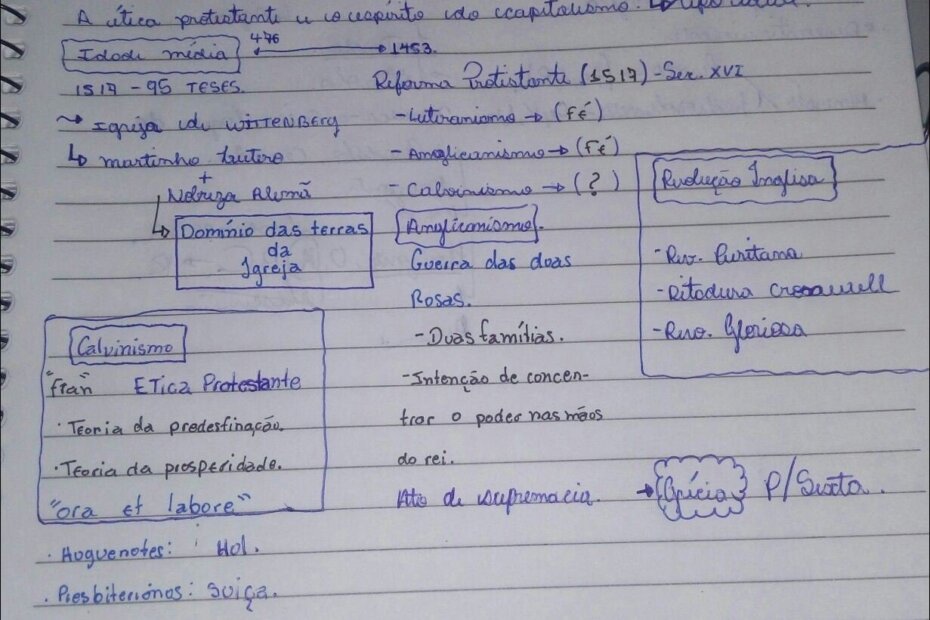 A ética protestante e o espírito do capitalismo. ↳ tipo ideal.
Idade média 476 ↔ 1453.
1517 - 95 TESES.
Reforma Protistante (1517) - Sec. XVI
⤳ Igreja de WITTENBERG
↳ martinho Lutero
+
Nobreza Alemã
↳ Domínio das terras
da
Igreja
- Luteranismo → (fé)
- Anglicanismo → (fé)
- Calvinismo → (?)
Anglicanismo.
Guerra das duas
Rosas.
- Duas famílias.
- Intenção de concen-
trar o poder nas mãos
do rei.
Ato de supremacia.
Revolução Inglesa
- Rev. Puritana
- Ditadura
- Revo. Gloriosa
→ Grécia P/ Sexta.
Calvinismo
"fran" ETica Protestante
· Teoria da predestinação.
· Teoria da prosperidade.
"ora et labore"
· Huguenotes: Hol.
· Presbiterianos: suiça.